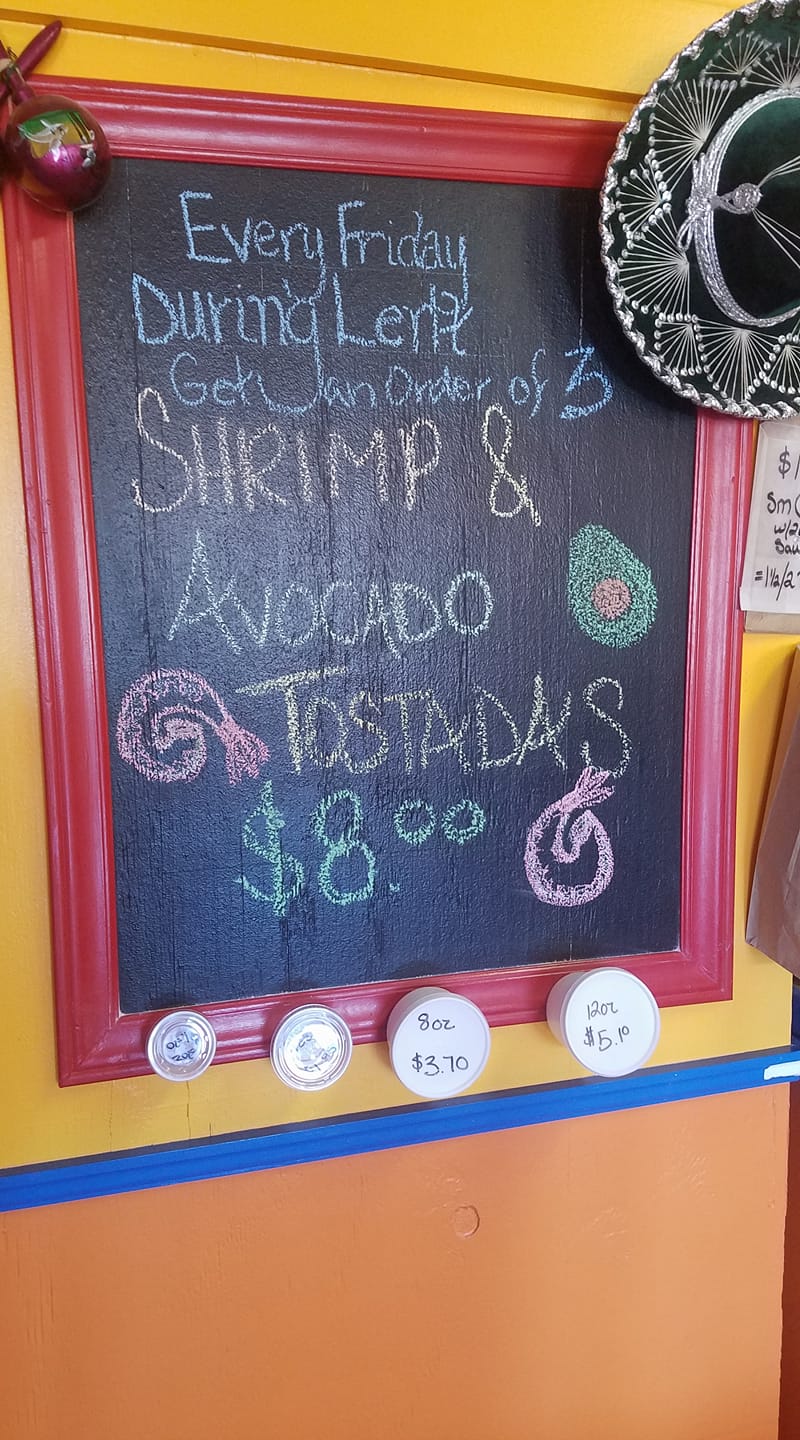 Every Friday
During Lent
Get an Order of 3
SHRIMP &
AVOCADO
TOSTADAS
$8.00
8oz
$3.70
12oz
$5.10
$1
Sm
w/2
=1½/2